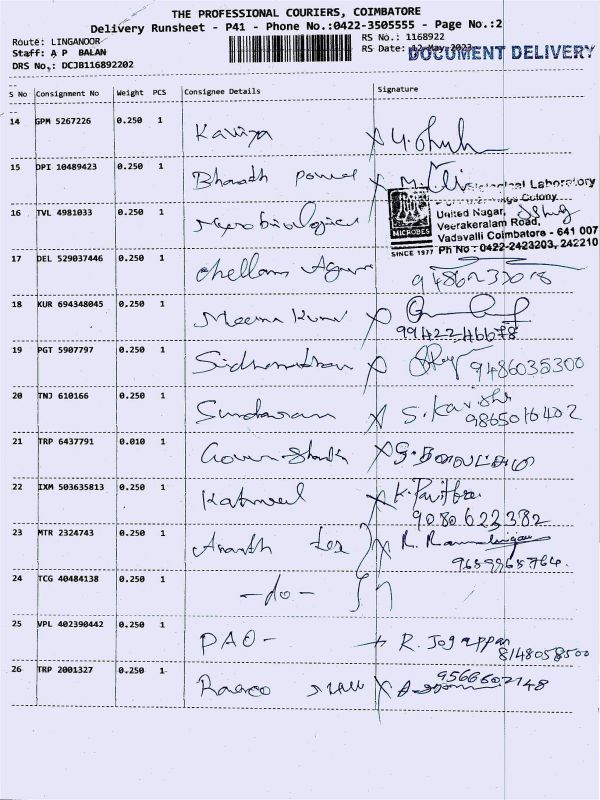 THE PROFESSIONAL COURIERS, COIMBATORE
Delivery Runsheet - P41 - Phone No.:0422-3505555 - Page No.:2
Route: LINGANOOR RS No.: 1168922
Staff: A P BALAN RS Date: 12-May-2023
DOCUMENT DELIVERY
DRS No,: DCJB116892202
S No Consignment No Weight PCS Consignee Details Signature
14 GPM 5267226 0.250 1 Kaviya
15 DPI 10489423 0.250 1 Bharath
Laboratory
Colony
16 TVL 4981033 0.250 1 Microbiological
United Nagar,
Veerakeralam Road,
MICROBES Vadavalli Coimbatore - 641 007
SINCE 1977 Ph No : 0422-2423203, 242210
17 DEL 529037446 0.250 1 Chellam
18 KUR 694348045 0.250 1 Meena Kumar
9942246678
19 PGT 5907797 0.250 1 9486035300
20 TNJ 610166 0.250 1 Sundaram S. Kavitha
9865016402
21 TRP 6437791 0.010 1
22 IXM 503635813 0.250 1 Kathirvel K. Pavithra
9080623382
23 MTR 2324743 0.250 1 Ananth Tex R. Ramalingam
24 TCG 40484138 0.250 1 -do-
25 VPL 402390442 0.250 1 PAO- R. Jogappan
8148058500
26 TRP 2001327 0.250 1 9566602148